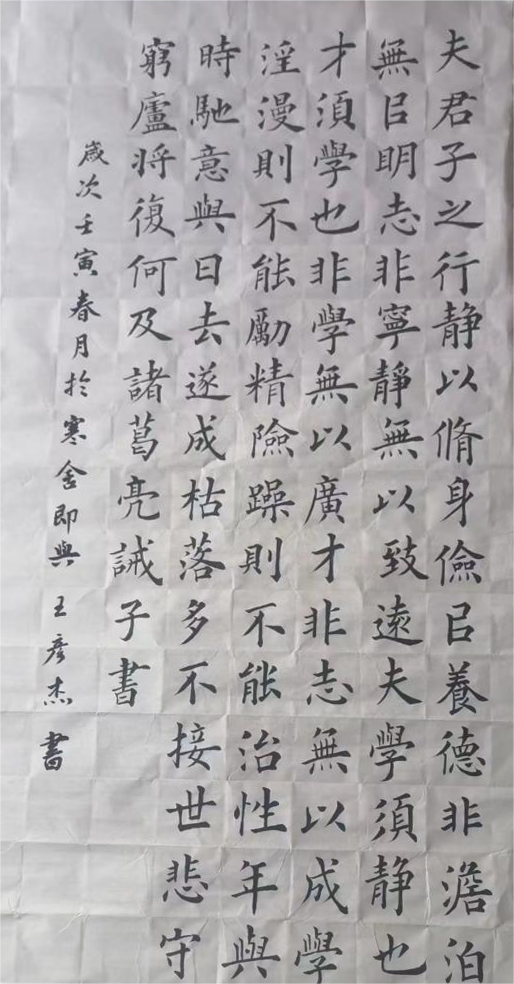 夫君子之行静以脩身儉㠯養德非澹泊
無㠯明志非寧靜無以致遠夫學須静也
才須學也非學無以廣才非志無以成學
淫漫則不能勵精險躁則不能治性年與
時馳意與日去遂成枯落多不接世悲守
窮廬将復何及諸葛亮誡子書
歲次壬寅春月於寒舍即興 王彦杰書